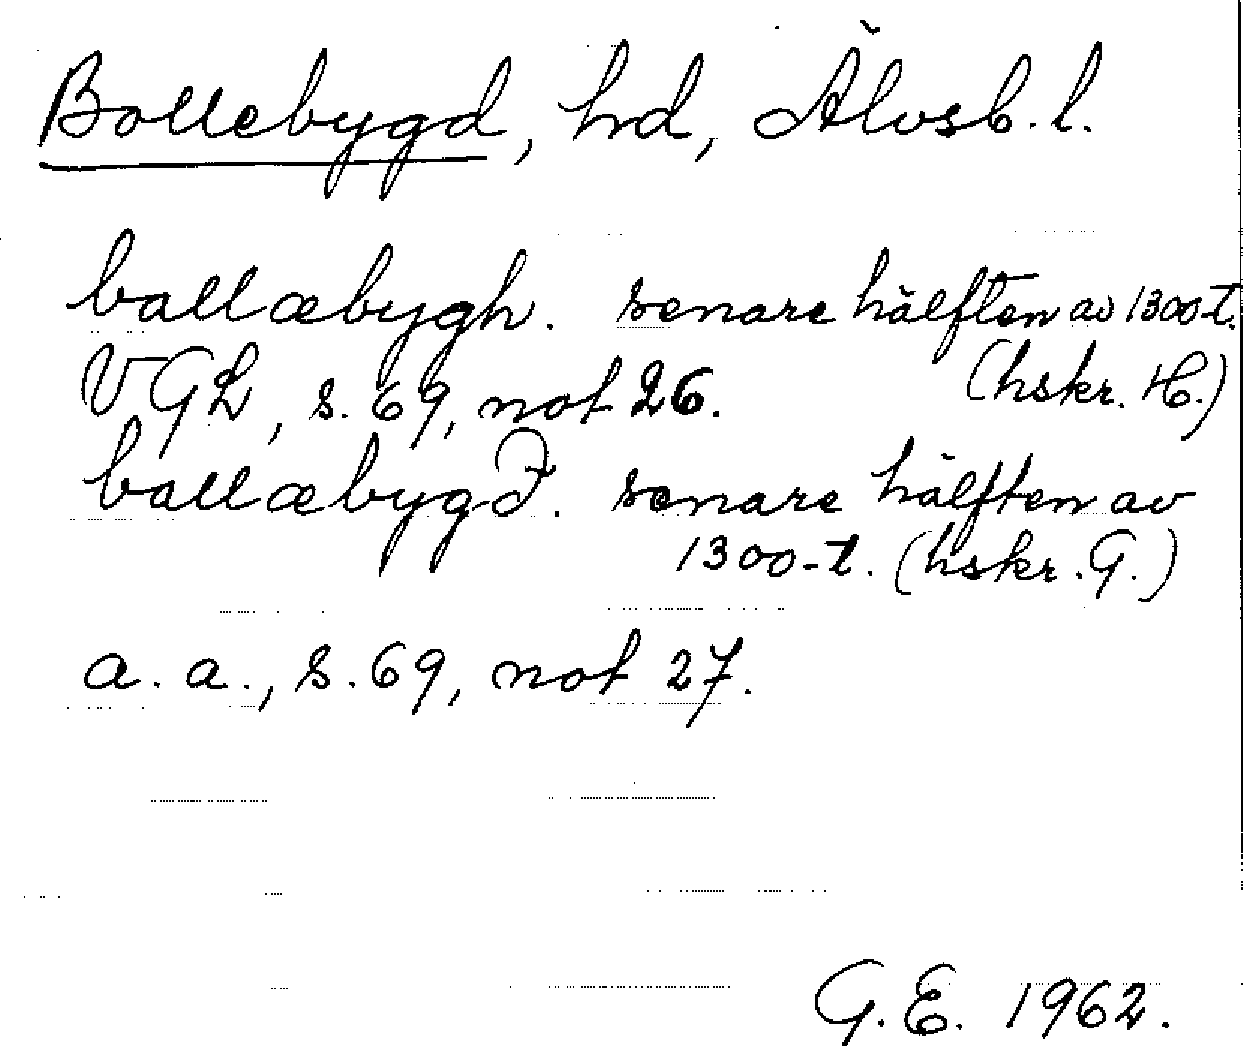 Bollebygd, hd, Älvsb. l.
ballæbygh. senare hälften av 1300-t.
VGL, s. 69, not 26. (hskr. H.)
ballæbygð. senare hälften av
1300-t. (hskr. G.)
a. a., s. 69, not 27.
G. E. 1962.